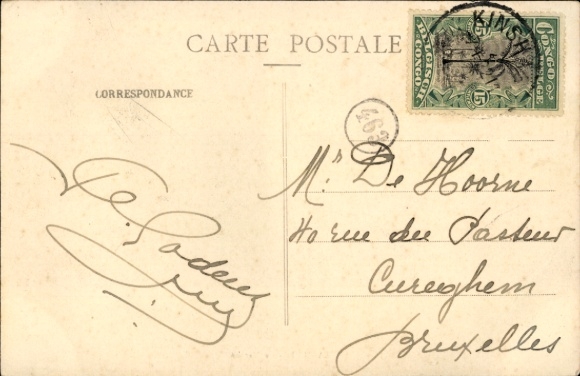 CARTE POSTALE
CORRESPONDANCE
CONGO BELGE
BELGISCH CONGO
15
15
KINSH
Mr De Hoorne
40 rue du Pasteur
Cureghem
Bruxelles